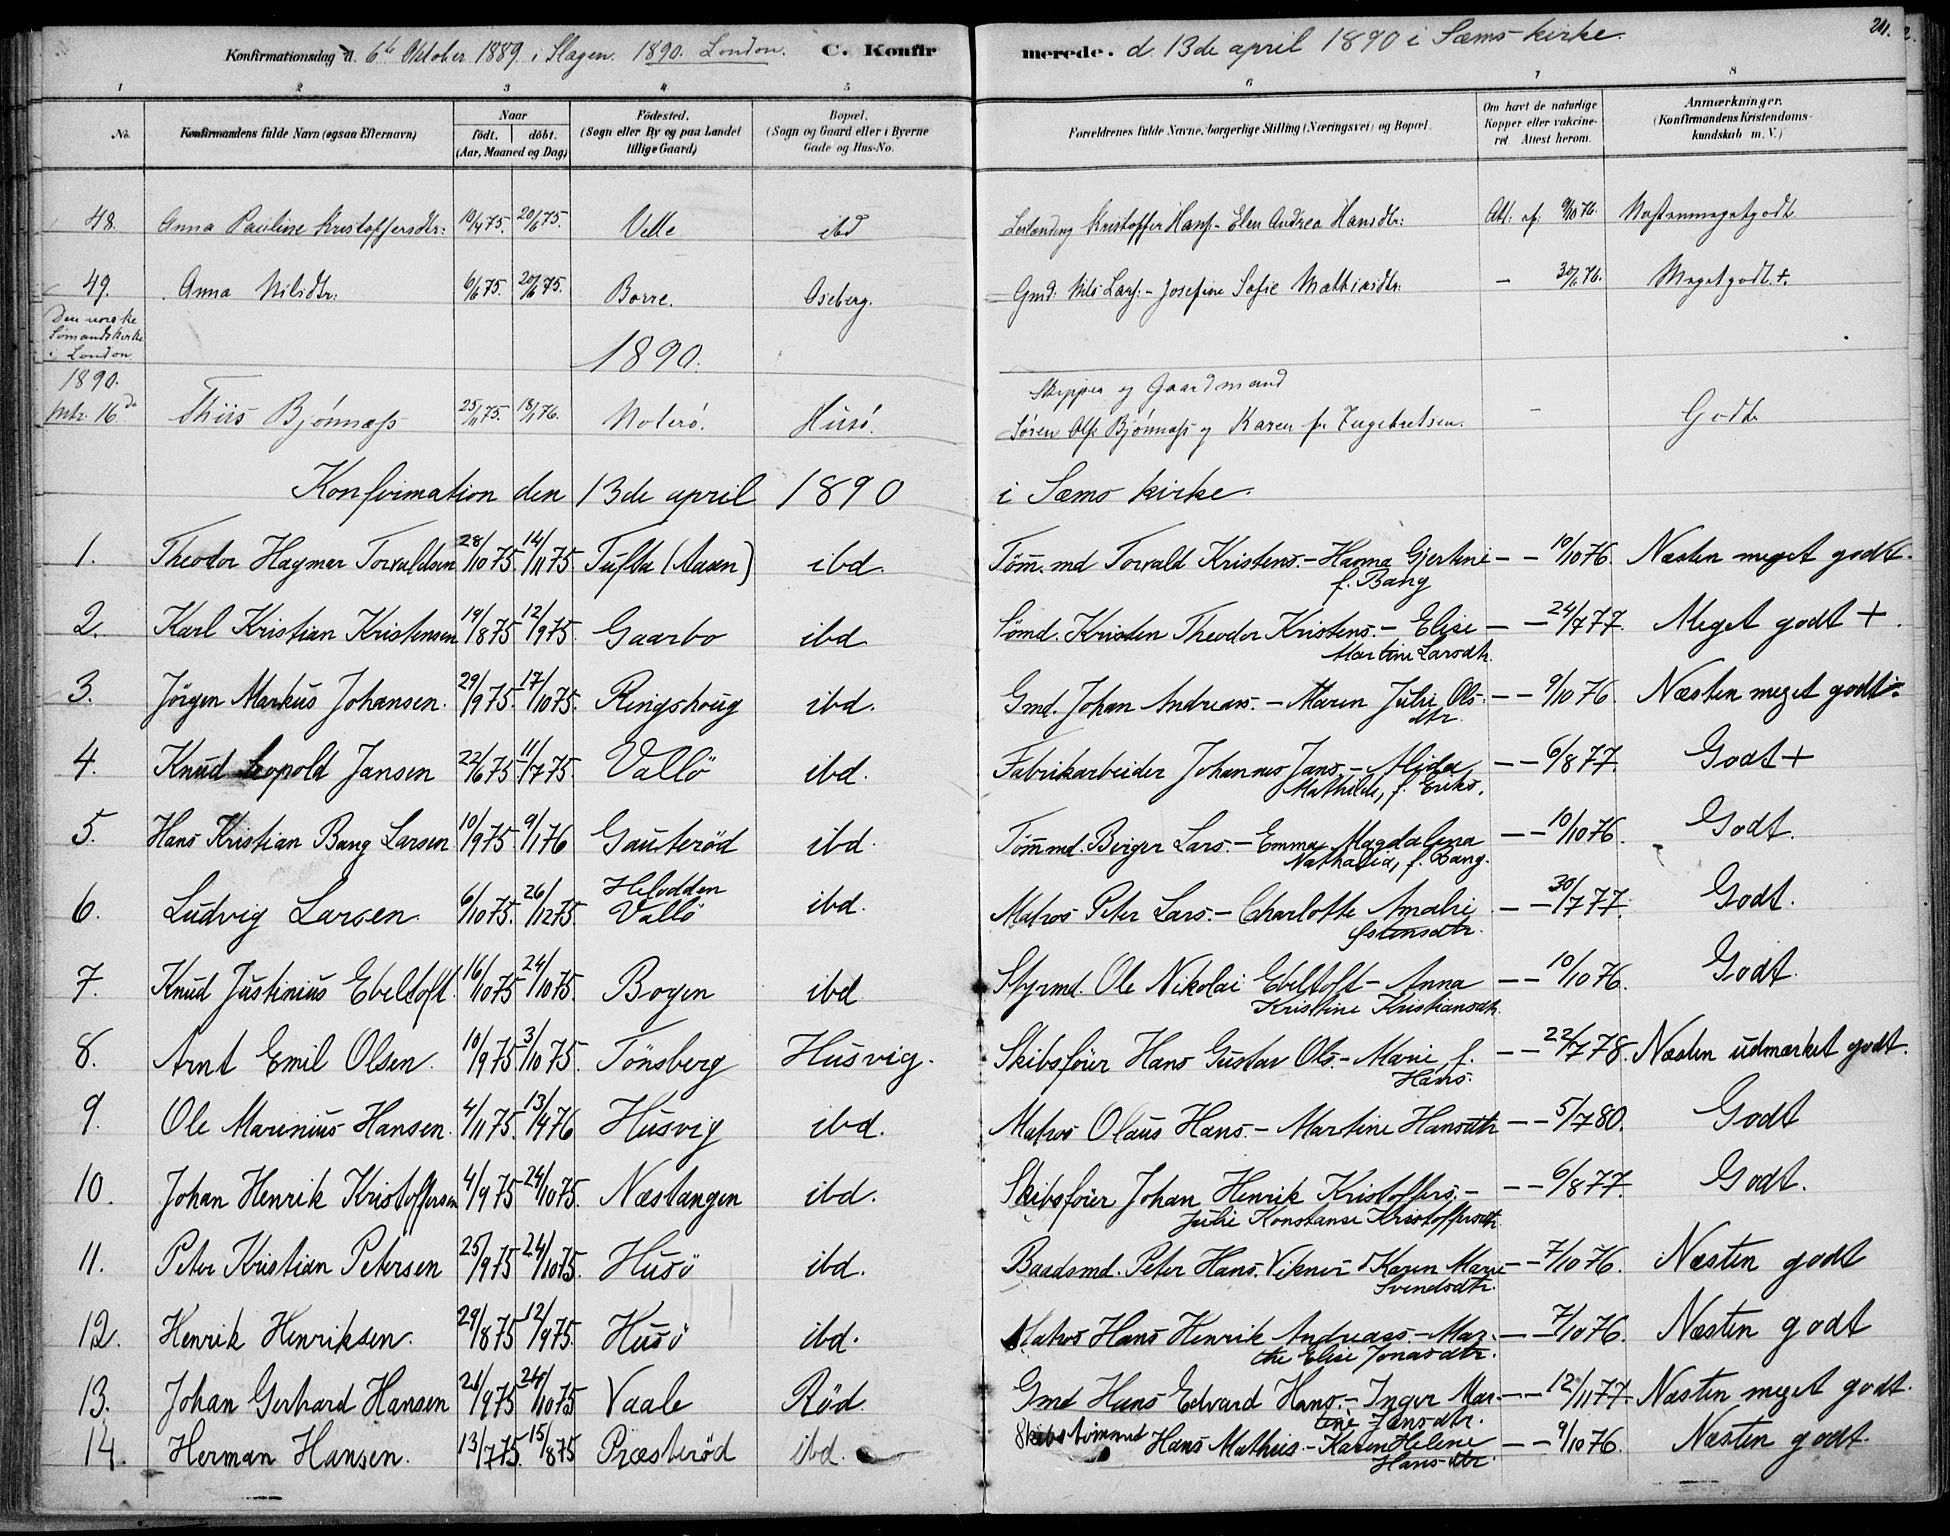 Konfirmationsdag d. 6te Oktober 1889. i Slagen. 1890. London. C. Konfir
merede. d. 13de april 1890 i Sæms-kirke. 211.
1 2 3 4 5 6 7 8
No. Konfirmandens fulde Navn (ogsaa Efternavn)
Naar
födt. döbt.
(Aar, Maaned og Dag)
Födested.
(Sogn eller By og paa Landet
tillige Gaard)
Bopæl.
(Sogn og Gaard eller i Byerne
Gade og Hus-No.
Forældrenes fulde Navne, borgerlige Stilling (Næringsvei) og Bopæl.
Om havt de naturlige
Kopper eller vakcine-
ret. Attest herom.
Anmærkninger.
(Konfirmandens Kristendoms-
kundskab m. V.)
48. Anna Pauline Kristoffersdtr: 10/4 75. 20/6 75. Velle ibd Kristoffer Hans.- Elen Andrea Hansdtr: Att. af. 9/10 76. Næstenmegetgodt
49. Anna Nilsdtr: 6/6 75. 20/6 75. Borre. Oseberg. Gmd. Nils Lars.- Josefine Sofie Mathisdtr: – 30/6 76. Megetgodt +.
Den norske
Sømandskirke
i London
1890.
1890.
Mts. 16de Thiis Bjönness 25/11 75. 18/1 76. Noterö. Husö. Skipper og Gaardmand
Sören Ols. Bjönness og Karen f. Ingebretsen. – Godt
Konfirmation den 13de april 1890 i Sæms kirke.
1. Theodor Hagmar Torvaldsen 28/10 75. 14/11 75 Tufta (Aasen) ibd. Tömmd Torvald Kristens.- Hanna Gjertine – – 10/10 76. Næsten meget godt.
f. Bang
2. Karl Kristian Kristensen 19/8 75 12/9 75. Gaarbo ibd Sömd. Kristen Theodor Kristens.- Elise – – 24/7 77. Meget godt +.
Martine Larsdtr.
3. Jörgen Markus Johansen. 29/9 75. 17/10 75. Ringshoug ibd. Gmd. Johan Andreas.- Maren Julie Ols- – – 9/10 76. Næsten meget godt
dtr.
4. Knud Leopold Jansen 22/6 75 11/7 75. Vallö ibd. Fabrikarbeider Johannes Jans.- Alida – – 6/8 77. Godt +
Mathilde, f. Eriks.
5. Hans Kristian Bang Larsen 10/9 75. 9/1 76 Gauteröd ibd. Tömmd. Berger Lars.- Emma Magdalena – – 10/10 76. Godt.
Nathalia, f. Bang.
6. Ludvig Larsen. 6/10 75. 26/12 75. Helodden
Vallö ibd. Matros Peter Lars.- Charlotte Amalie – – 30/7 77. Godt.
Östensdtr.
7. Knud Justinius Ebeltoft. 16/10 75 24/10 75. Bogen ibd Styrmd. Ole Nikolai Ebeltoft – Anna – – 10/10 76. Godt.
Kristine Kristiansdtr.
8. Arnt Emil Olsen. 10/9 75 3/10 75. Tönsberg Husvig. Skibsförer Hans Gustav Ols.- Marie f. – – 22/7 78. Næsten udmærket godt.
Hans.
9. Ole Marinius Hansen. 4/11 75. 13/4 76 Husvig ibd. Matros Olaus Hans.- Martine Hansdtr – – 5/7 80. Godt
10. Johan Henrik Kristoffersen 4/9 75 24/10 75. Næstangen ibd. Skibsförer Johan Henrik Kristoffers.- – – 6/8 77. Godt.
Julie Konstanse Kristoffersdtr.
11. Peter Kristian Petersen 25/9 75 24/10 75. Husö ibd. Baadsmd. Peter Hans. Viknes & Karen Marie – – 7/10 76. Næsten godt
Svendsdtr.
12. Henrik Henriksen. 29/8 75 12/9 75. Husö ibd. Matros Hans Henrik Andreass.- Mar- – – 7/10 76. Næsten godt
the Elise Jonasdtr.
13. Johan Gerhard Hansen 21/9 75 24/10 75 Vaale Röd. Gmd Hans Edvard Hans.- Inger Mar- – – 12/11 77. Næsten meget godt.
tine Jansdtr.
14. Herman Hansen. 13/7 75. 15/8 75 Præsteröd ibd. Skibstömmed Hans Mathias – Karen Helene – – 9/10 76. Næsten godt.
Hansdtr.